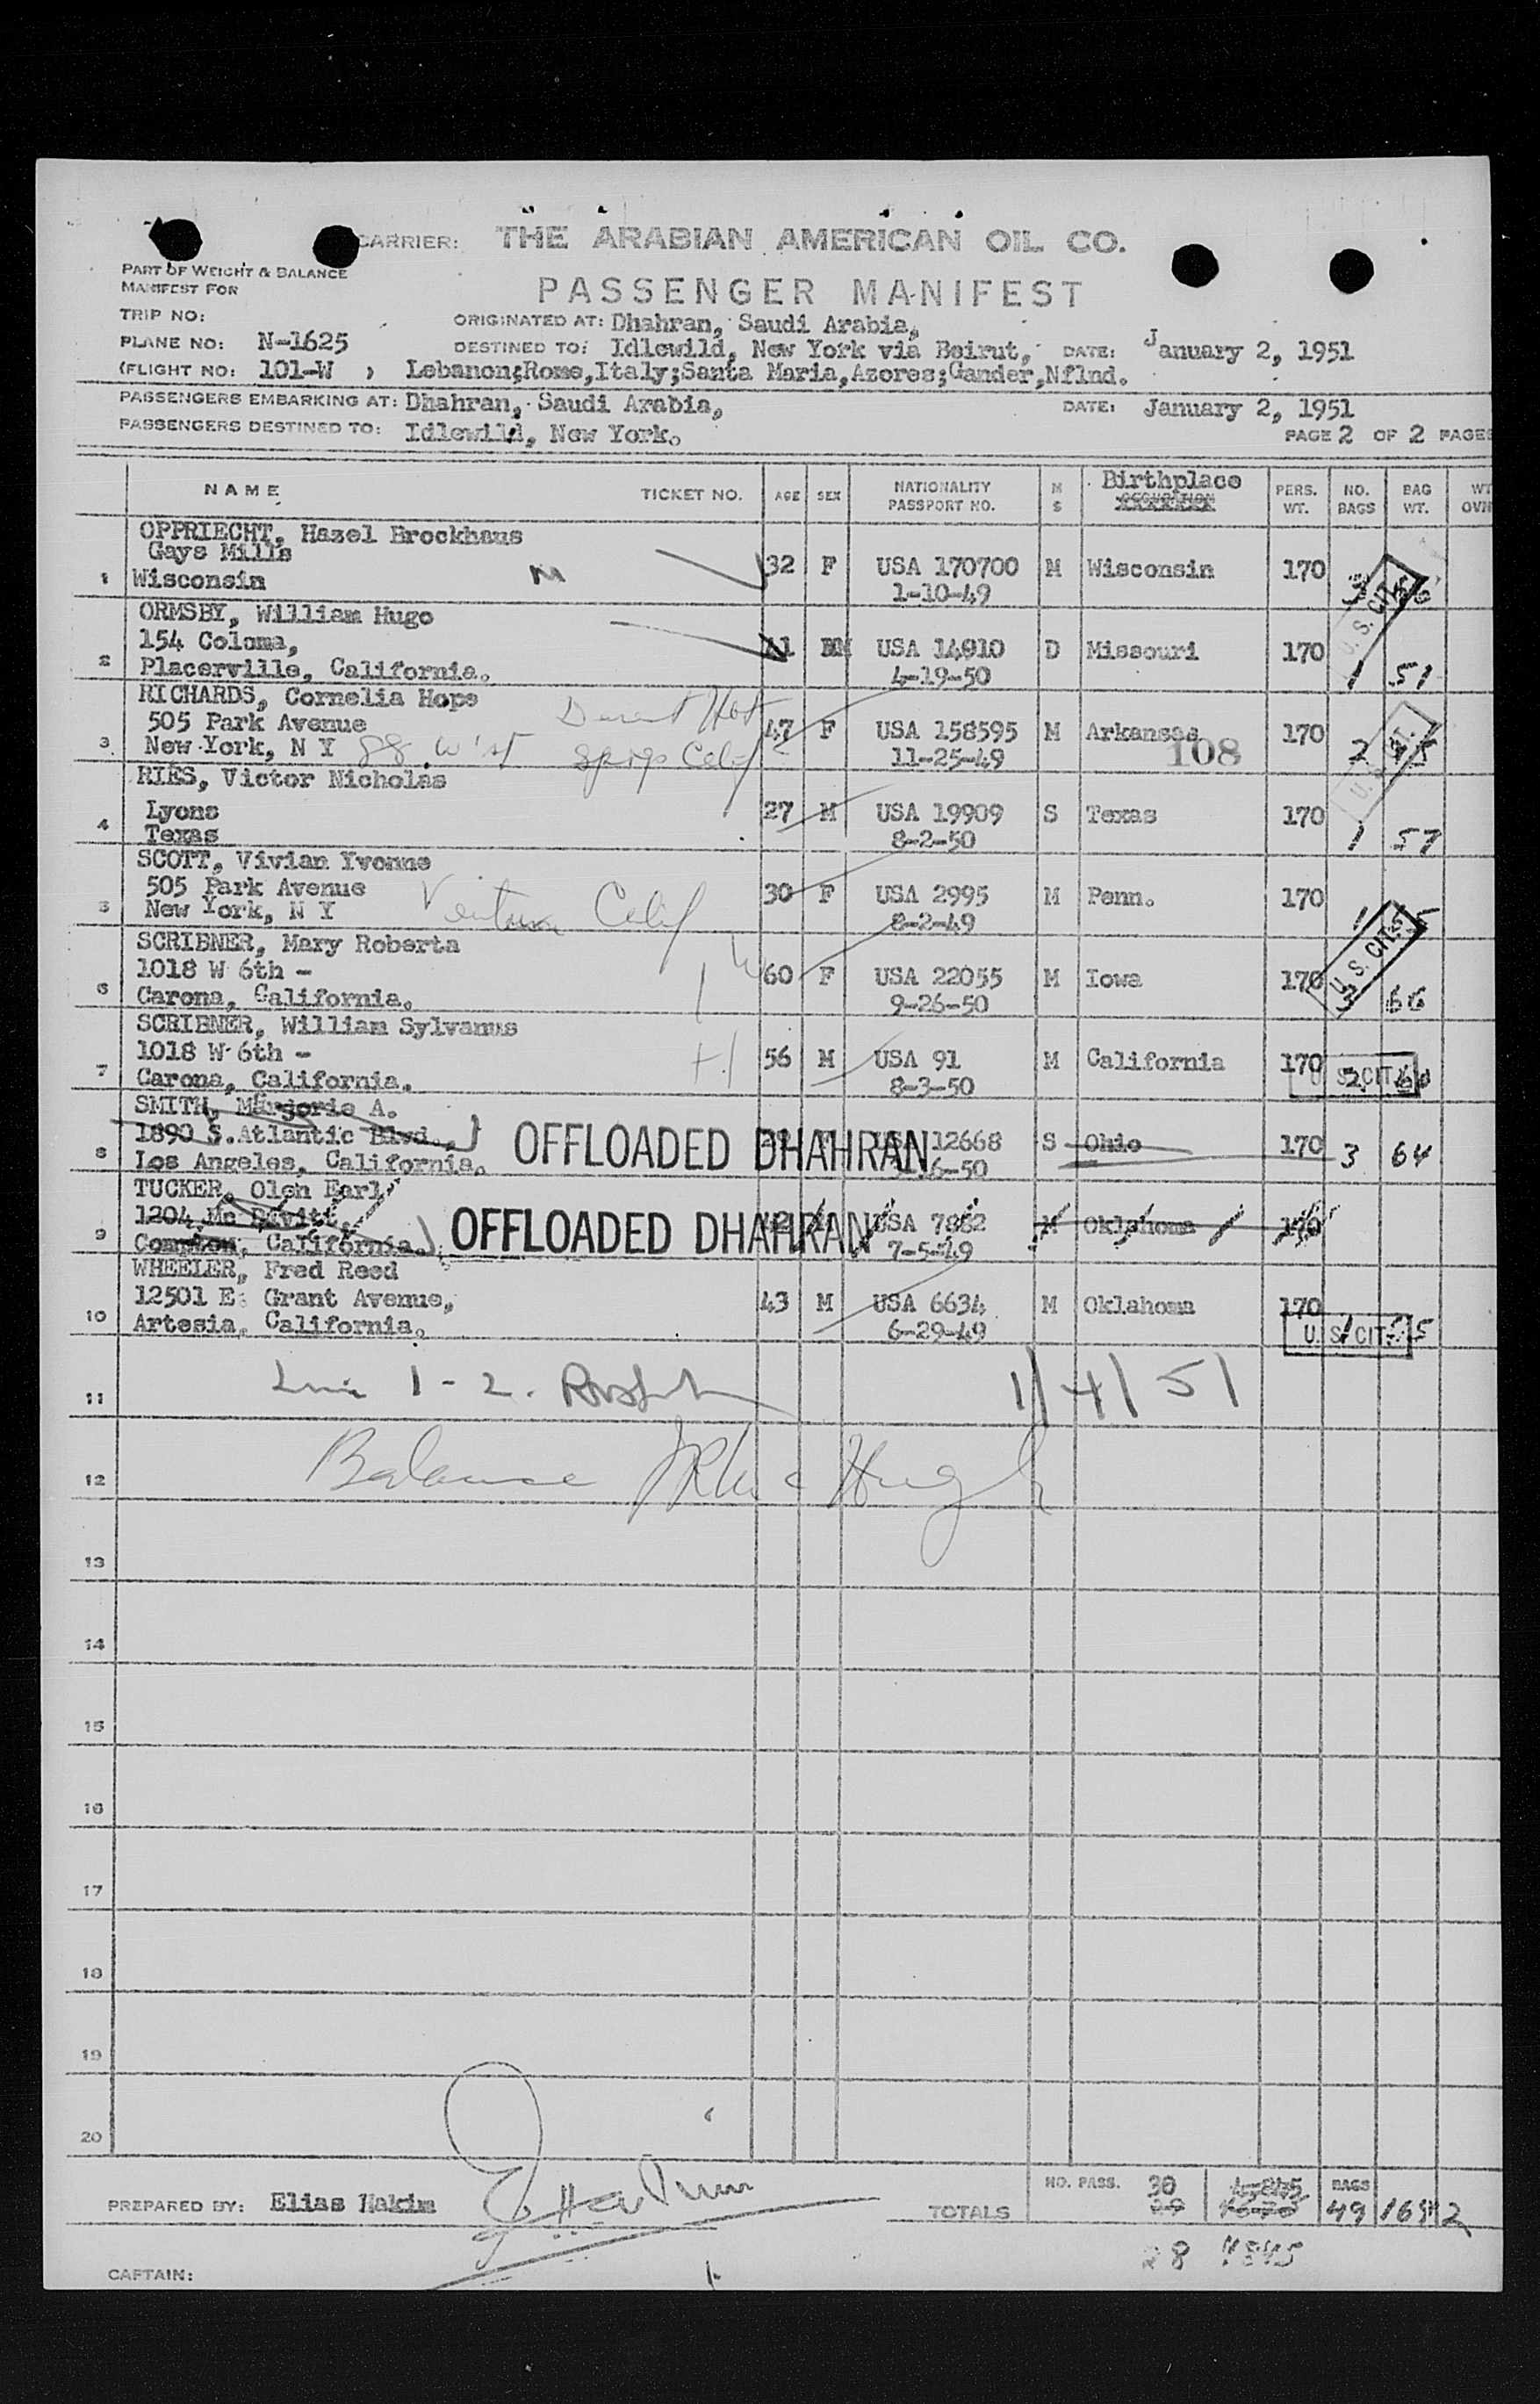 CARRIER: THE ARABIAN AMERICAN OIL CO.
PART OF WEIGHT & BALANCE
MANIFEST FOR
PASSENGER MANIFEST
TRIP NO:
ORIGINATED AT: Dhahran, Saudi Arabia,
PLANE NO: N-1625
DESTINED TO: Idlewild, New York via Beirut, DATE: January 2, 1951
(FLIGHT NO: 101-W ) Lebanon;Rome,Italy;Santa Maria,Azores;Gander,Nflnd.
PASSENGERS EMBARKING AT: Dhahran, Saudi Arabia, DATE: January 2, 1951
PASSENGERS DESTINED TO: Idlewild, New York.
PAGE 2 OF 2 PAGES
NAME TICKET NO. AGE SEX NATIONALITY PASSPORT NO. M S Birthplace PERS. WT. NO. BAGS BAG WT. WT OVN
OPPRIECHT, Hazel Brockhaus
Gays Mills
1 Wisconsin M 32 F USA 170700 M Wisconsin 170 3
1-10-49
U. S. CIT.
ORMSBY, William Hugo
154 Coloma, 41 M USA 14910 D Missouri 170
2 Placerville, California. 4-19-50 1 51
RICHARDS, Cornelia Hope
505 Park Avenue Desert Hot 47 F USA 158595 M Arkansas 170
3 New York, N Y 88 W' st Sprgs Calif 11-25-49 108 2
U. S. CIT.
RIES, Victor Nicholas
Lyons 27 M USA 19909 S Texas 170
4 Texas 8-2-50 1 57
SCOTT, Vivian Yvonne
505 Park Avenue 30 F USA 2995 M Penn. 170
5 New York, N Y Ventura Calif 8-2-49 1 55
U. S. CIT.
SCRIBNER, Mary Roberta
1018 W 6th - W 60 F USA 22055 M Iowa 170
6 Carona, California. 9-26-50 3 66
SCRIBNER, William Sylvanus
1018 W 6th - H 56 M USA 91 M California 170
7 Carona, California. 8-3-50 2 60
U. S. CIT.
SMITH, Marjorie A.
1890 S.Atlantic Blvd., OFFLOADED DHAHRAN 12668 S Ohio 170 3 64
8 Los Angeles, California. 6-50
TUCKER, Olen Earl
1204 Mc Divitt, OFFLOADED DHAHRAN 42 USA 7882 M Oklahoma 170
9 Compton, California. 7-5-49
WHEELER, Fred Reed
12501 E. Grant Avenue, 43 M USA 6634 M Oklahoma 170
10 Artesia, California. 6-29-49 1 55
U. S. CIT.
11 Line 1 - 2. 1/4/51
12 Balance
13
14
15
16
17
18
19
20
PREPARED BY: Elias Hakim
TOTALS NO. PASS. 30 BAGS
29 49
28 4845
CAPTAIN: